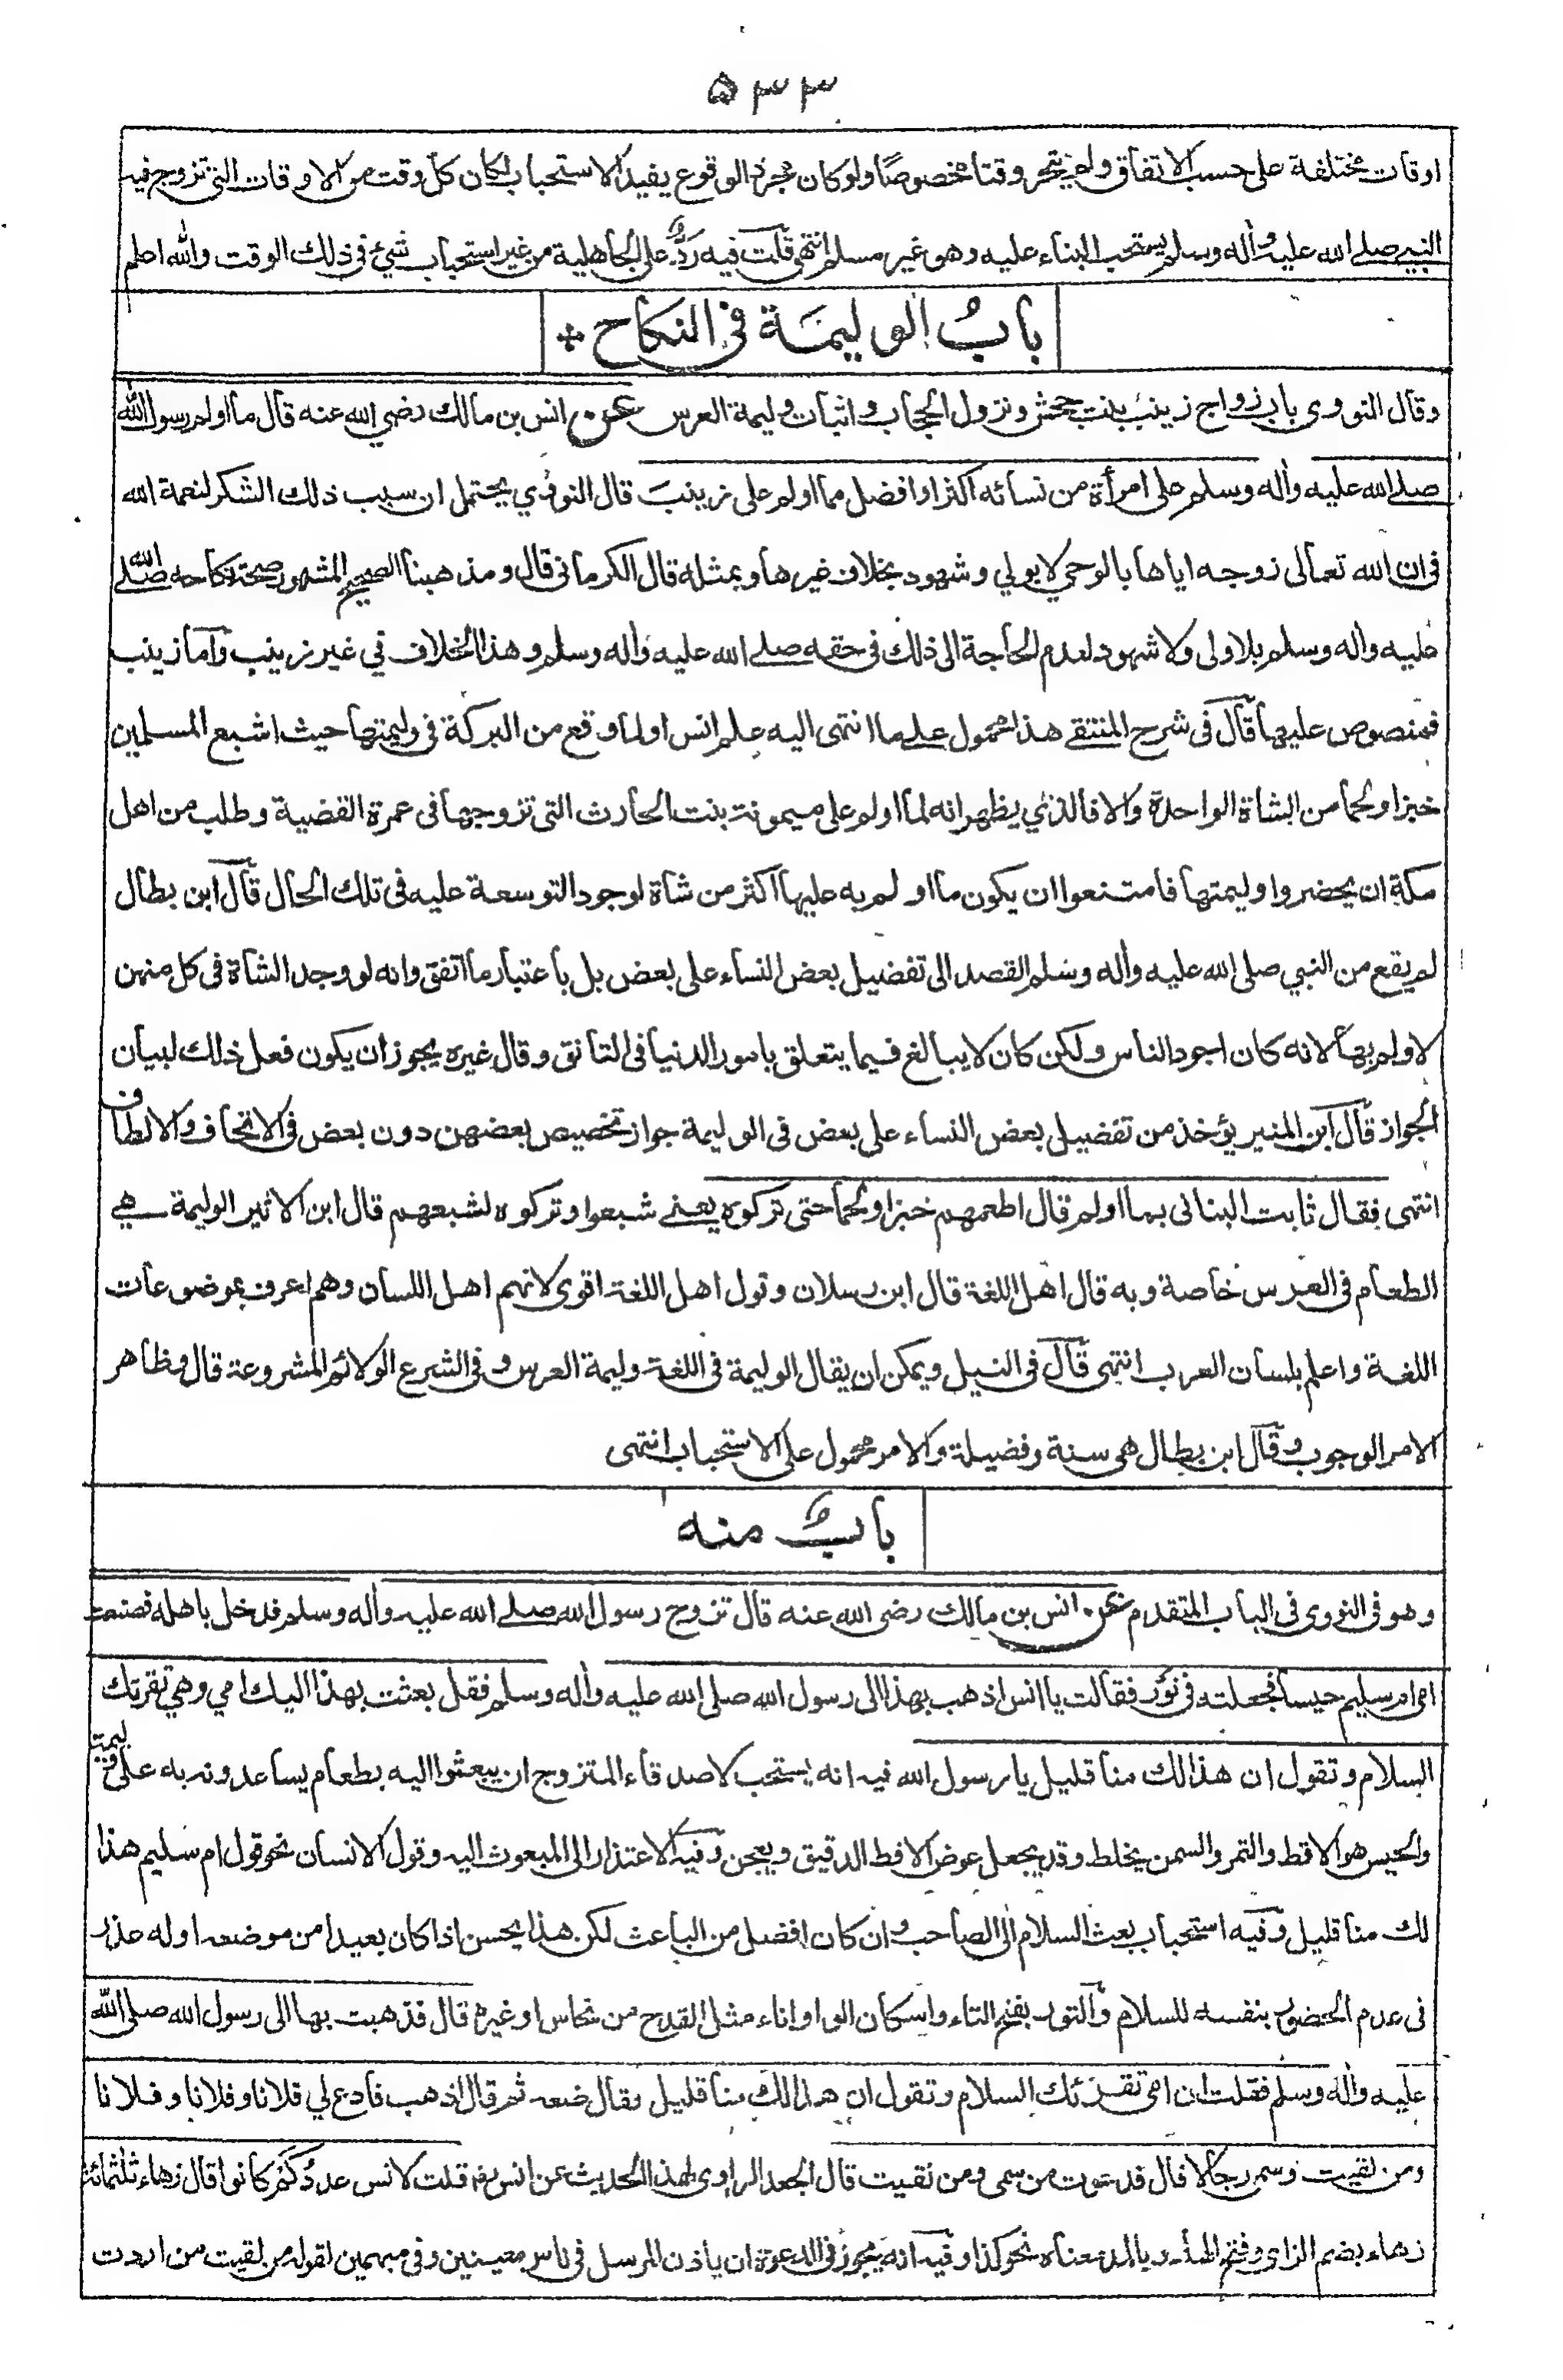 ٥٣٣
اوقات مختلفة على حسب الاتفاق ولم يتحر وقتا مخصوصًا ولو كان مجرد الوقوع يفيد الاستحباب لكان كل وقت من الاوقات التي تزوج فيه
النبي صلى الله عليه واٰله وسلم يستحب البناء عليه وهو غير مسلم انتهى قلت فيه ردّ على الجاهلية من غير استحباب شيئ في ذلك الوقت والله اعلم
بابُ الوليمَة في النكاح
وقال النووي باب زواج زينب بنت جحش ونزول الحجاب واثبات وليمة العرس عن انس بن مالك رضي الله عنه قال ما اولم رسول الله
صلى الله عليه واٰله وسلم على امرأة من نسائه اكثر او افضل مما اولم على زينبَ قال النووي يحتمل ان سبب ذلك الشكر لنعمة الله
في ان الله تعالى زوجه اياها بالوحي لا بولي وشهود بخلاف غيرها وبمثله قال الكرماني قال ومذهبنا الصحيح المشهور صحة نكاحه صلى الله
عليه واٰله وسلم بلا ولى ولا شهود لعدم الحاجة الى ذلك في حقه صلى الله عليه واٰله وسلم وهذا الخلاف في غير زينب واما زينب
فمنصوص عليها قال في شرح المنتقى هذا محمول على ما انتهى اليه علم انس او لما وقع من البركة في وليمتها حيث اشبع المسلمين
خبزا ولحما من الشاة الواحدة والا فالذي يظهر انه لما اولم على ميمونة بنت الحارث التي تزوجها في عمرة القضية وطلب من اهل
مكة ان يحضروا وليمتها فامتنعوا ان يكون ما اولم به عليها اكثر من شاة لوجود التوسعة عليه في تلك الحال قال ابن بطال
لم يقع من النبي صلى الله عليه واٰله وسلم القصد الى تفضيل بعض النساء على بعض بل باعتبار ما اتفق وانه لو وجد الشاة في كل منهن
لاولم بها لانه كان اجود الناس ولكن كان لا يبالغ فيما يتعلق بامور الدنيا في التانق وقال غيره يجوز ان يكون فعل ذلك لبيان
الجواز قال ابن المنير يؤخذ من تفضيل بعض النساء على بعض في الوليمة جواز تخصيص بعضهن دون بعض في الاتحاف والالطاف
انتهى فقال ثابت البناني بما اولم قال اطعمهم خبزا ولحما حتى تركوه يعنى شبعوا وتركوه لشبعهم قال ابن الاثير الوليمة هي
الطعام في العرس خاصة وبه قال اهل اللغة قال ابن رسلان وقول اهل اللغة اقوى لانهم اهل اللسان وهم اعرف بموضوعات
اللغة واعلم بلسان العرب انتهى قال في النيل ويمكن ان يقال الوليمة في اللغة وليمة العرس وفي الشرع الولائم المشروعة قال وظاهر
الامر الوجوب وقال ابن بطال هي سنة وفضيلة والامر محمول على الاستحباب انتهى
بابٌ منه
وهو في النووي في الباب المتقدم عن انس بن مالك رضى الله عنه قال تزوج رسول الله صلى الله عليه واٰله وسلم فدخل باهله فصنعت
امي ام سليم حيسا فجعلته في تَوْر فقالت يا انس اذهب بهذا الى رسول الله صلى الله عليه واٰله وسلم فقل بعثت بهذا اليك امي وهي تقرئك
السلام وتقول ان هذا لك منا قليل يا رسول الله فيه انه يستحب لاصدقاء المتزوج ان يبعثوا اليه بطعام يساعدونه به على وليمته
والحيس هو الاقط والتمر والسمن يخلط وقد يجعل عوض الاقط الدقيق ويعجن وفيه الاعتذار الى المبعوث اليه وقول الانسان نحو قول ام سليم هذا
لك منا قليل وفيه استحباب بعث السلام الى الصاحب وان كان افضل من الباعث لكن هذا يحسن اذا كان بعيدا من موضعه او له عذر
في عدم الحضور بنفسه للسلام والتور بفتح التاء واسكان الواو اناء مثل القدح من نحاس او غيره قال فذهبت بها الى رسول الله صلى الله
عليه واٰله وسلم فقلت ان امي تقرئك السلام وتقول ان هذا لك منا قليل فقال ضعه ثم قال اذهب فادع لي فلانا وفلانا وفلانا
ومن لقيت وسمى رجالا قال فدعوت من سمى ومن لقيت قال الجعد الراوي لهذا الحديث عن انس رض قلت لانس عدد كم كانوا قال زهاء ثلثمائة
زهاء بضم الزاي وفتح الهاء وبالمد معناه نحو كذا وفيه انه يجوز في الدعوة ان ياذن المرسل في ناس معينين وفي مبهمين لقوله من لقيت من اردت